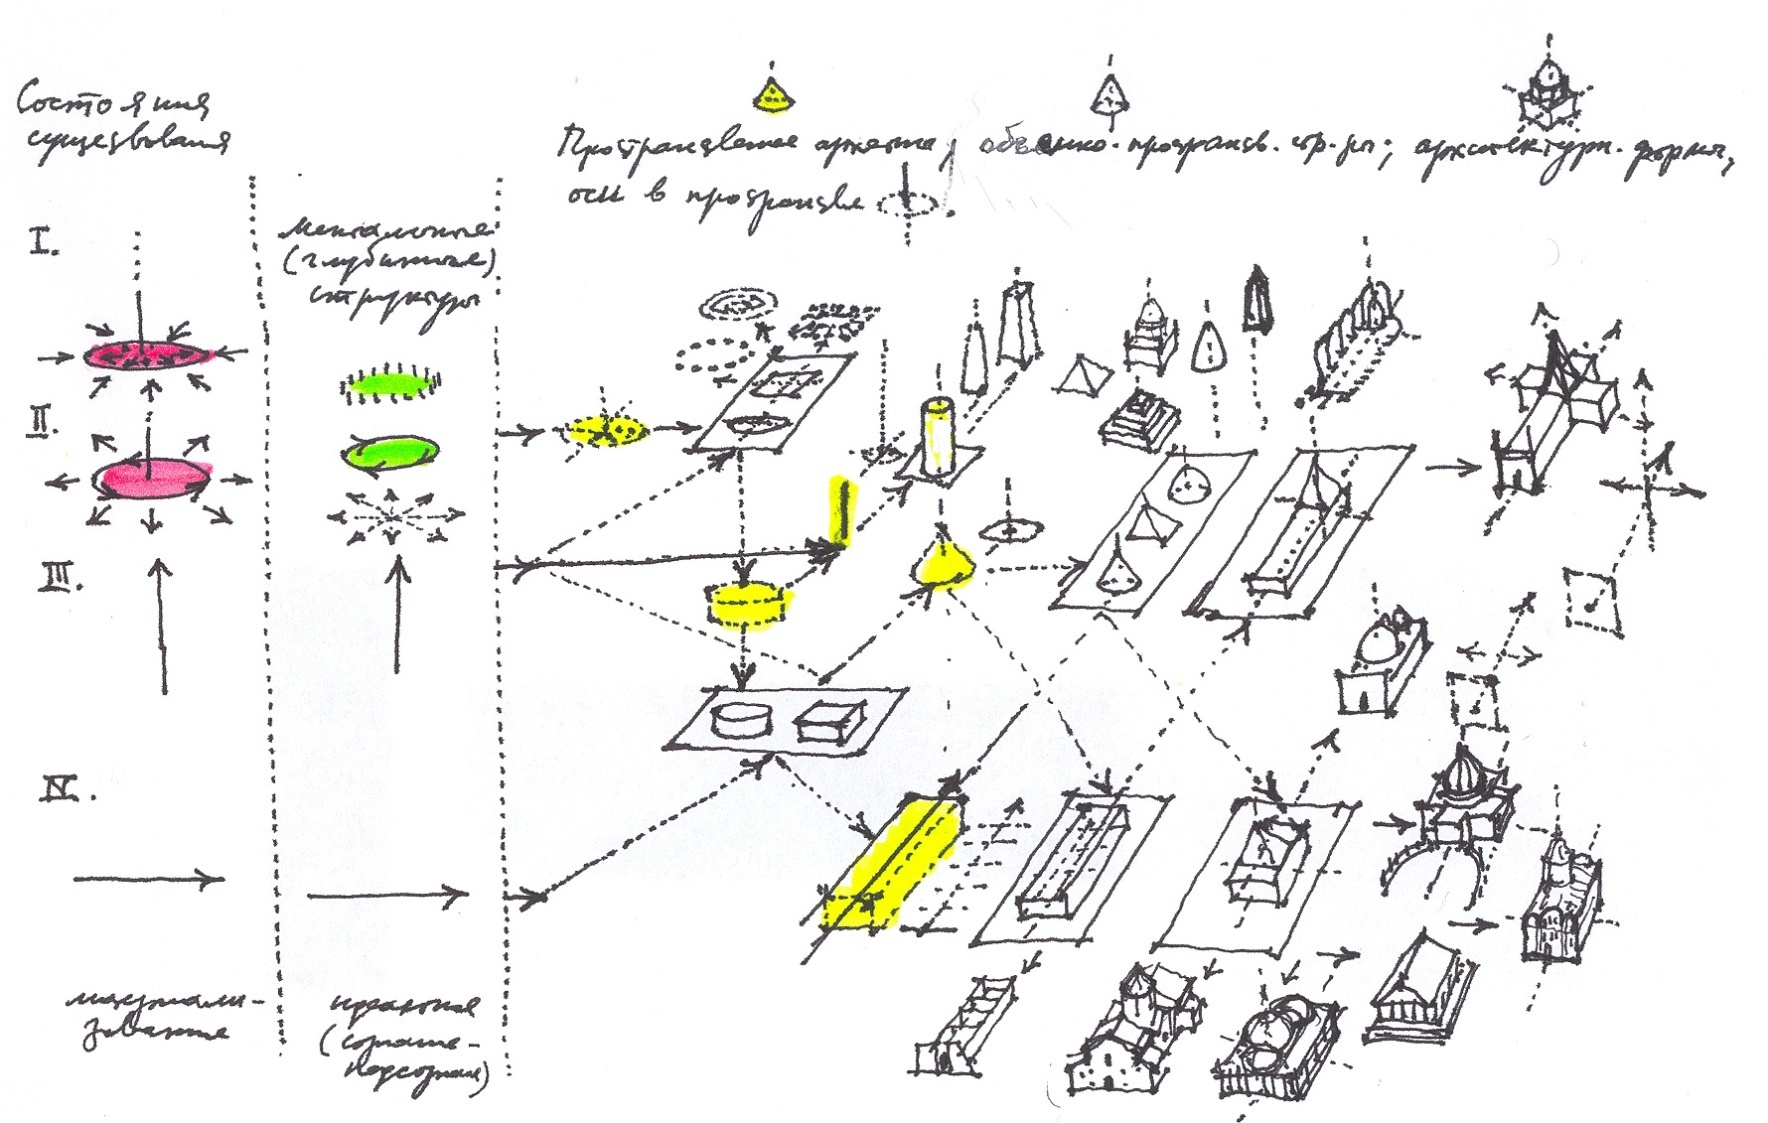 Состояния
существования
Пространственные архетипы; объемно-пространств. стр-ры; архитектурн. форма,
оси в пространстве
I.
ментальные
(глубинные)
структуры
II.
III.
IV.
материали-
зованные
идеальные
(сознание-
подсознан)